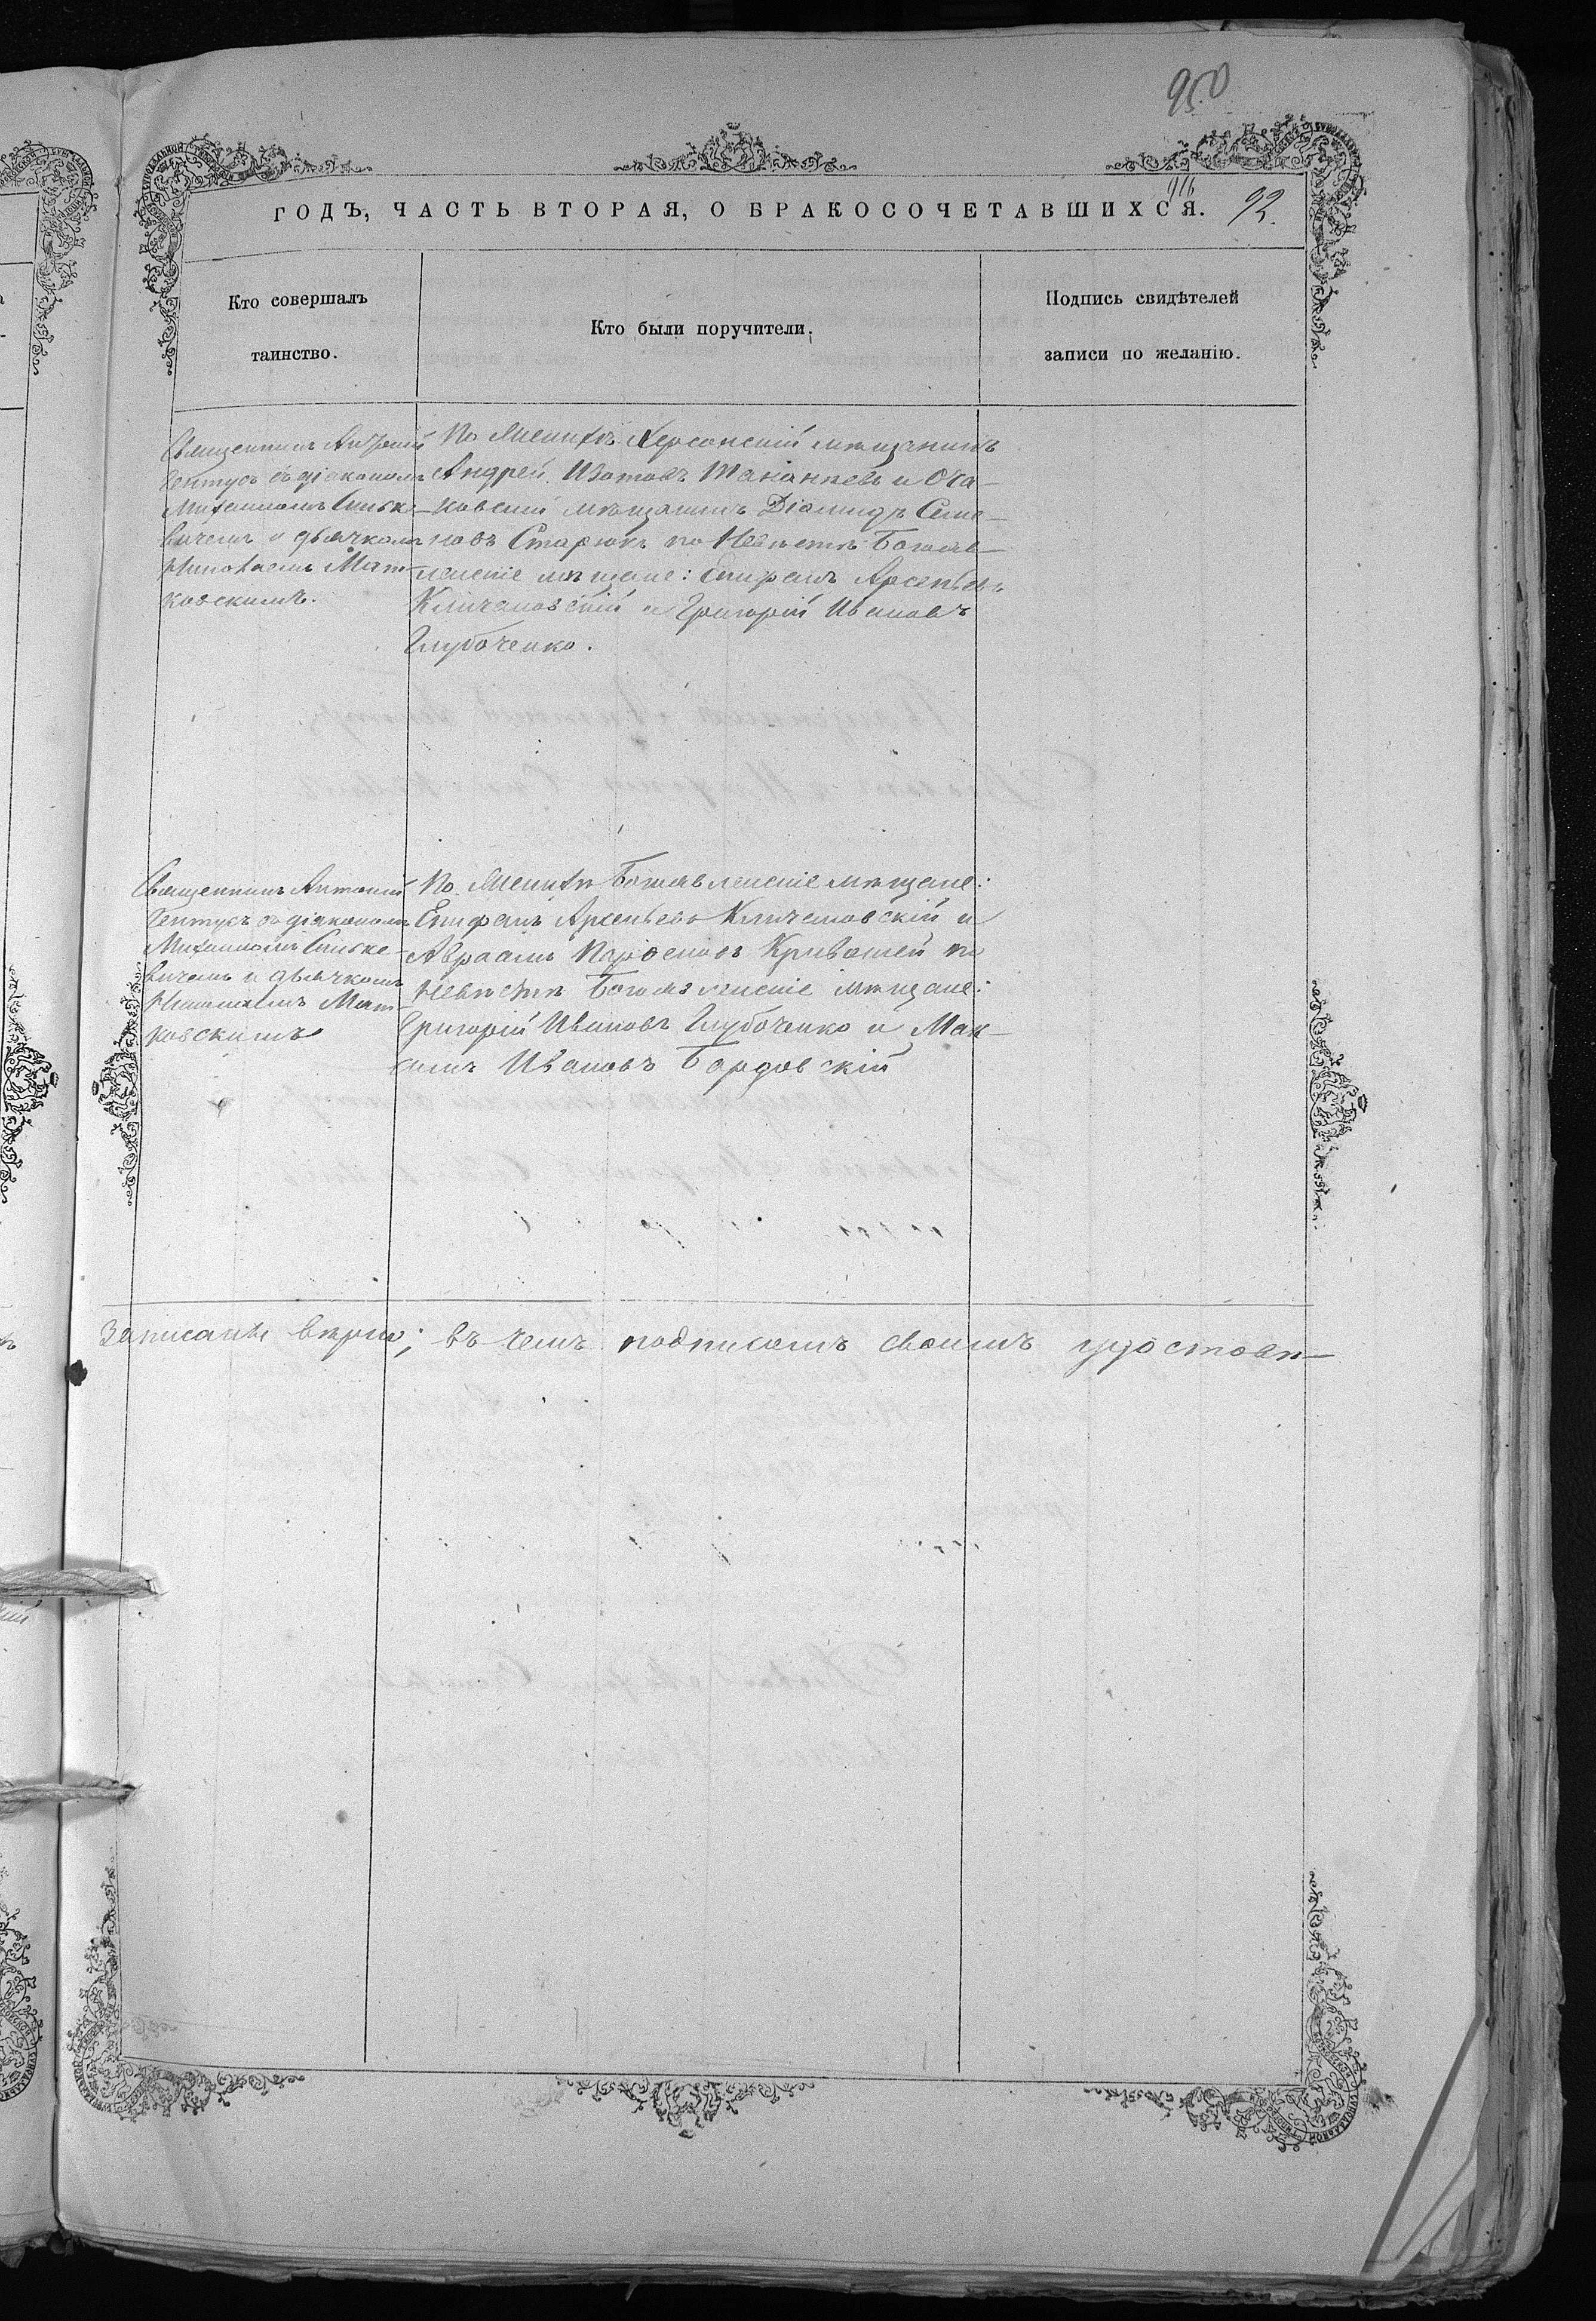 950
916
ГОДЪ, ЧАСТЬ ВТОРАЯ, О БРАКОСОЧЕТАВШИХСЯ. 92.
Кто совершалъ
таинство.
Кто были поручители.
Подпись свидѣтелей
записи по желанію.
Священникъ Антоній
съ діакономъ
Михаиломъ Синьке-
вичемъ и дьячкомъ
Николаемъ Мат-
ковскимъ.
По Женихѣ Херсонскій мѣщанинъ
Андрей Изотовъ и Оча-
ковскій мѣщанинъ Діомидъ Семе-
новъ Старюкъ по Невѣстѣ Богояв-
ленскіе мѣщане: Епифанъ Арсеньевъ
Кличановскій и Григорій Ивановъ
Глубоченко.
Священникъ Антоній
съ діакономъ
Михаиломъ Синьке-
вичемъ и дьячкомъ
Николаемъ Мат-
ковскимъ
По Женихѣ Богоявленскіе мѣщане:
Епифанъ Арсеньевъ Кличановскій и
Авраамъ Кривошей по
Невѣстѣ Богоявленскіе мѣщане:
Григорій Ивановъ Глубоченко и Мак-
симъ Ивановъ Бордовскій
Записаны вѣрно; въ чемъ подписомъ своимъ удостовѣ-